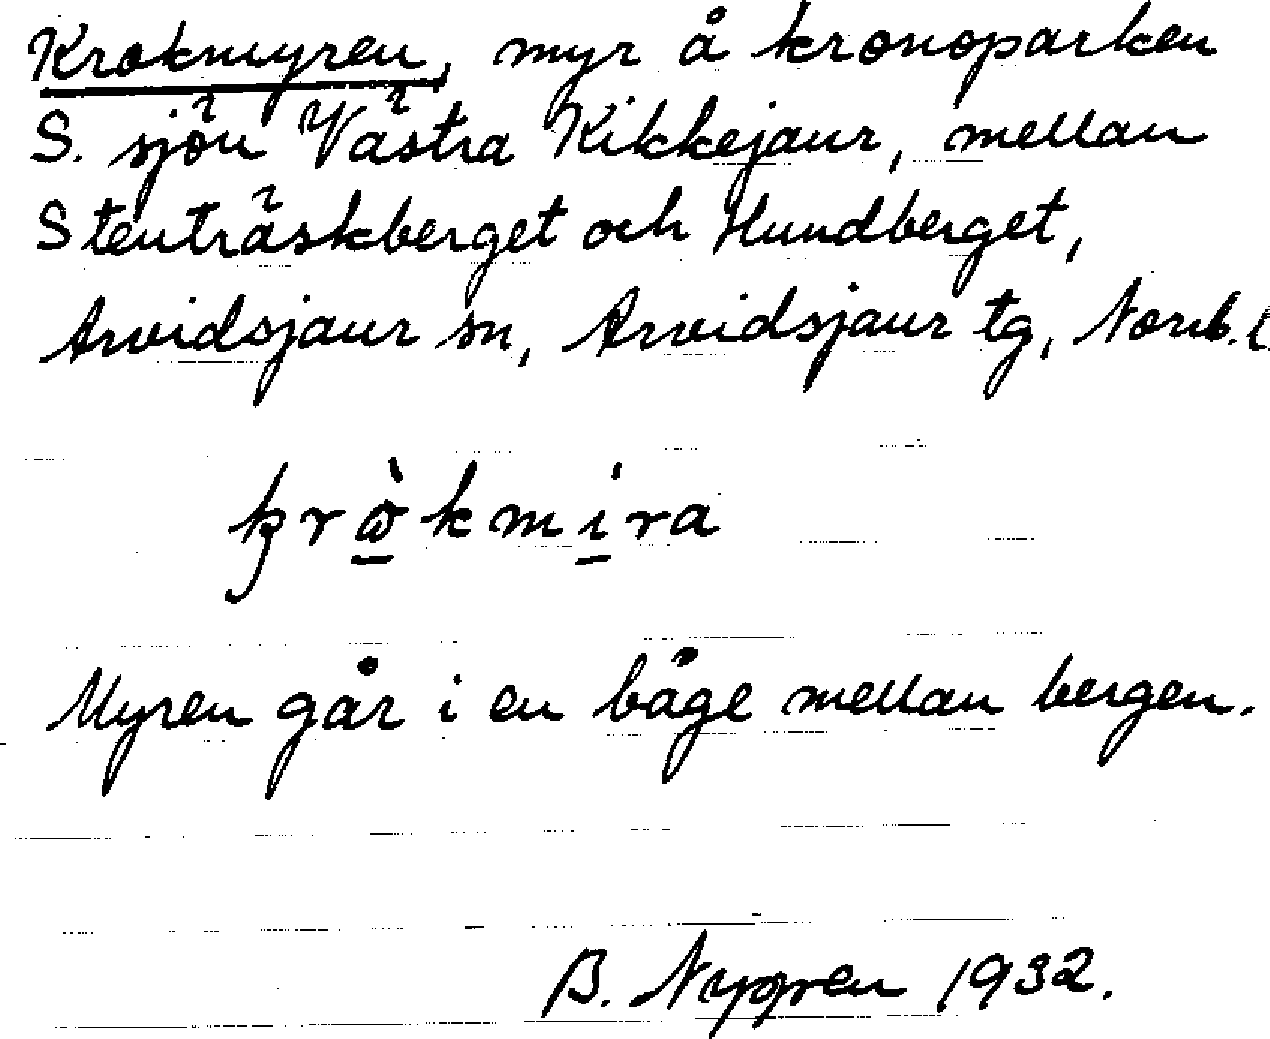 Krokmyren, myr å kronoparken
S. sjön Västra Kikkejaur, mellan
Stenträskberget och Hundberget,
Arvidsjaur sn, Arvidsjaur tg, Norrb. l
kròkmira
Myren går i en båge mellan bergen.
B. Nygren 1932.